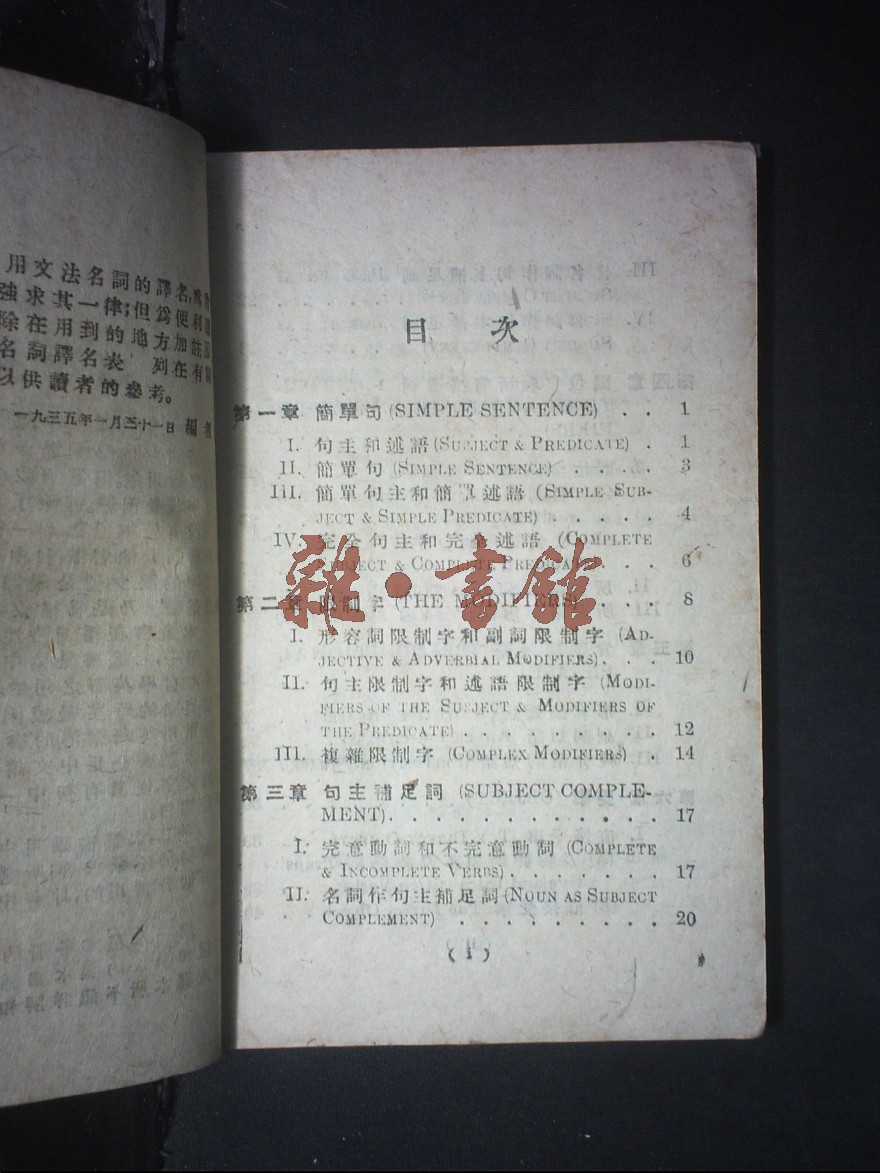 用文法名詞的譯名,
強求其一律;但爲便利
除在用到的地方加註
名詞譯名表 列在有
以供讀者的參考。
一九三五年一月三十一日 編者
目次
第一章 簡單句 (SIMPLE SENTENCE) . . 1
I. 句主和述語 (SUBJECT & PREDICATE) . 1
II. 簡單句 (SIMPLE SENTENCE) . . . . 3
III. 簡單句主和簡單述語 (SIMPLE SUB-
JECT & SIMPLE PREDICATE) . . . . . 4
IV. 完全句主和完全述語 (COMPLETE
SUBJECT & COMPLETE PREDICATE) . . 6
第二章 限制字 (THE MODIFIERS) . . . . 8
I. 形容詞限制字和副詞限制字 (AD-
JECTIVE & ADVERBIAL MODIFIERS) . . . 10
II. 句主限制字和述語限制字 (MODI-
FIERS OF THE SUBJECT & MODIFIERS OF
THE PREDICATE) . . . . . . . . . 12
III. 複雜限制字 (COMPLEX MODIFIERS) . 14
第三章 句主補足詞 (SUBJECT COMPLE-
MENT) . . . . . . . . . . . 17
I. 完意動詞和不完意動詞 (COMPLETE
& INCOMPLETE VERBS) . . . . . . 17
II. 名詞作句主補足詞 (NOUN AS SUBJECT
COMPLEMENT) . . . . . . . . . 20
( 1 )
雜·書館